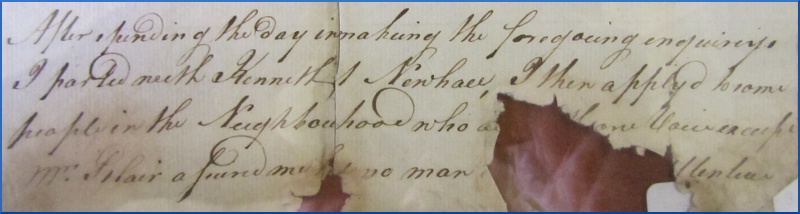 After spending the day in making the foregoing enquirys
I parted with Kenneth t Newhall, I then apply'd to some
people in the Neighbourhood who a one voice except
Mr. Blair assured me no man